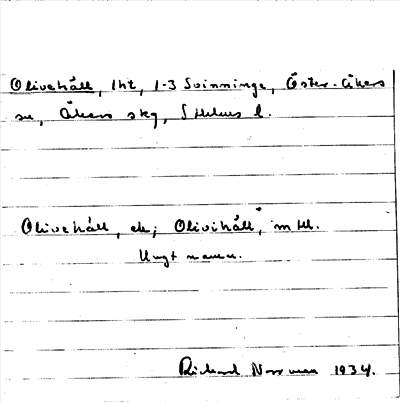 Olivehäll, lht, 1-3 Svinninge, Öster-Åkers
sn, Åkers skg, Sthlms l.
Olivehäll, ek; Olivihäll, m tl.
Ungt namn.
Rickard Norrman 1934.